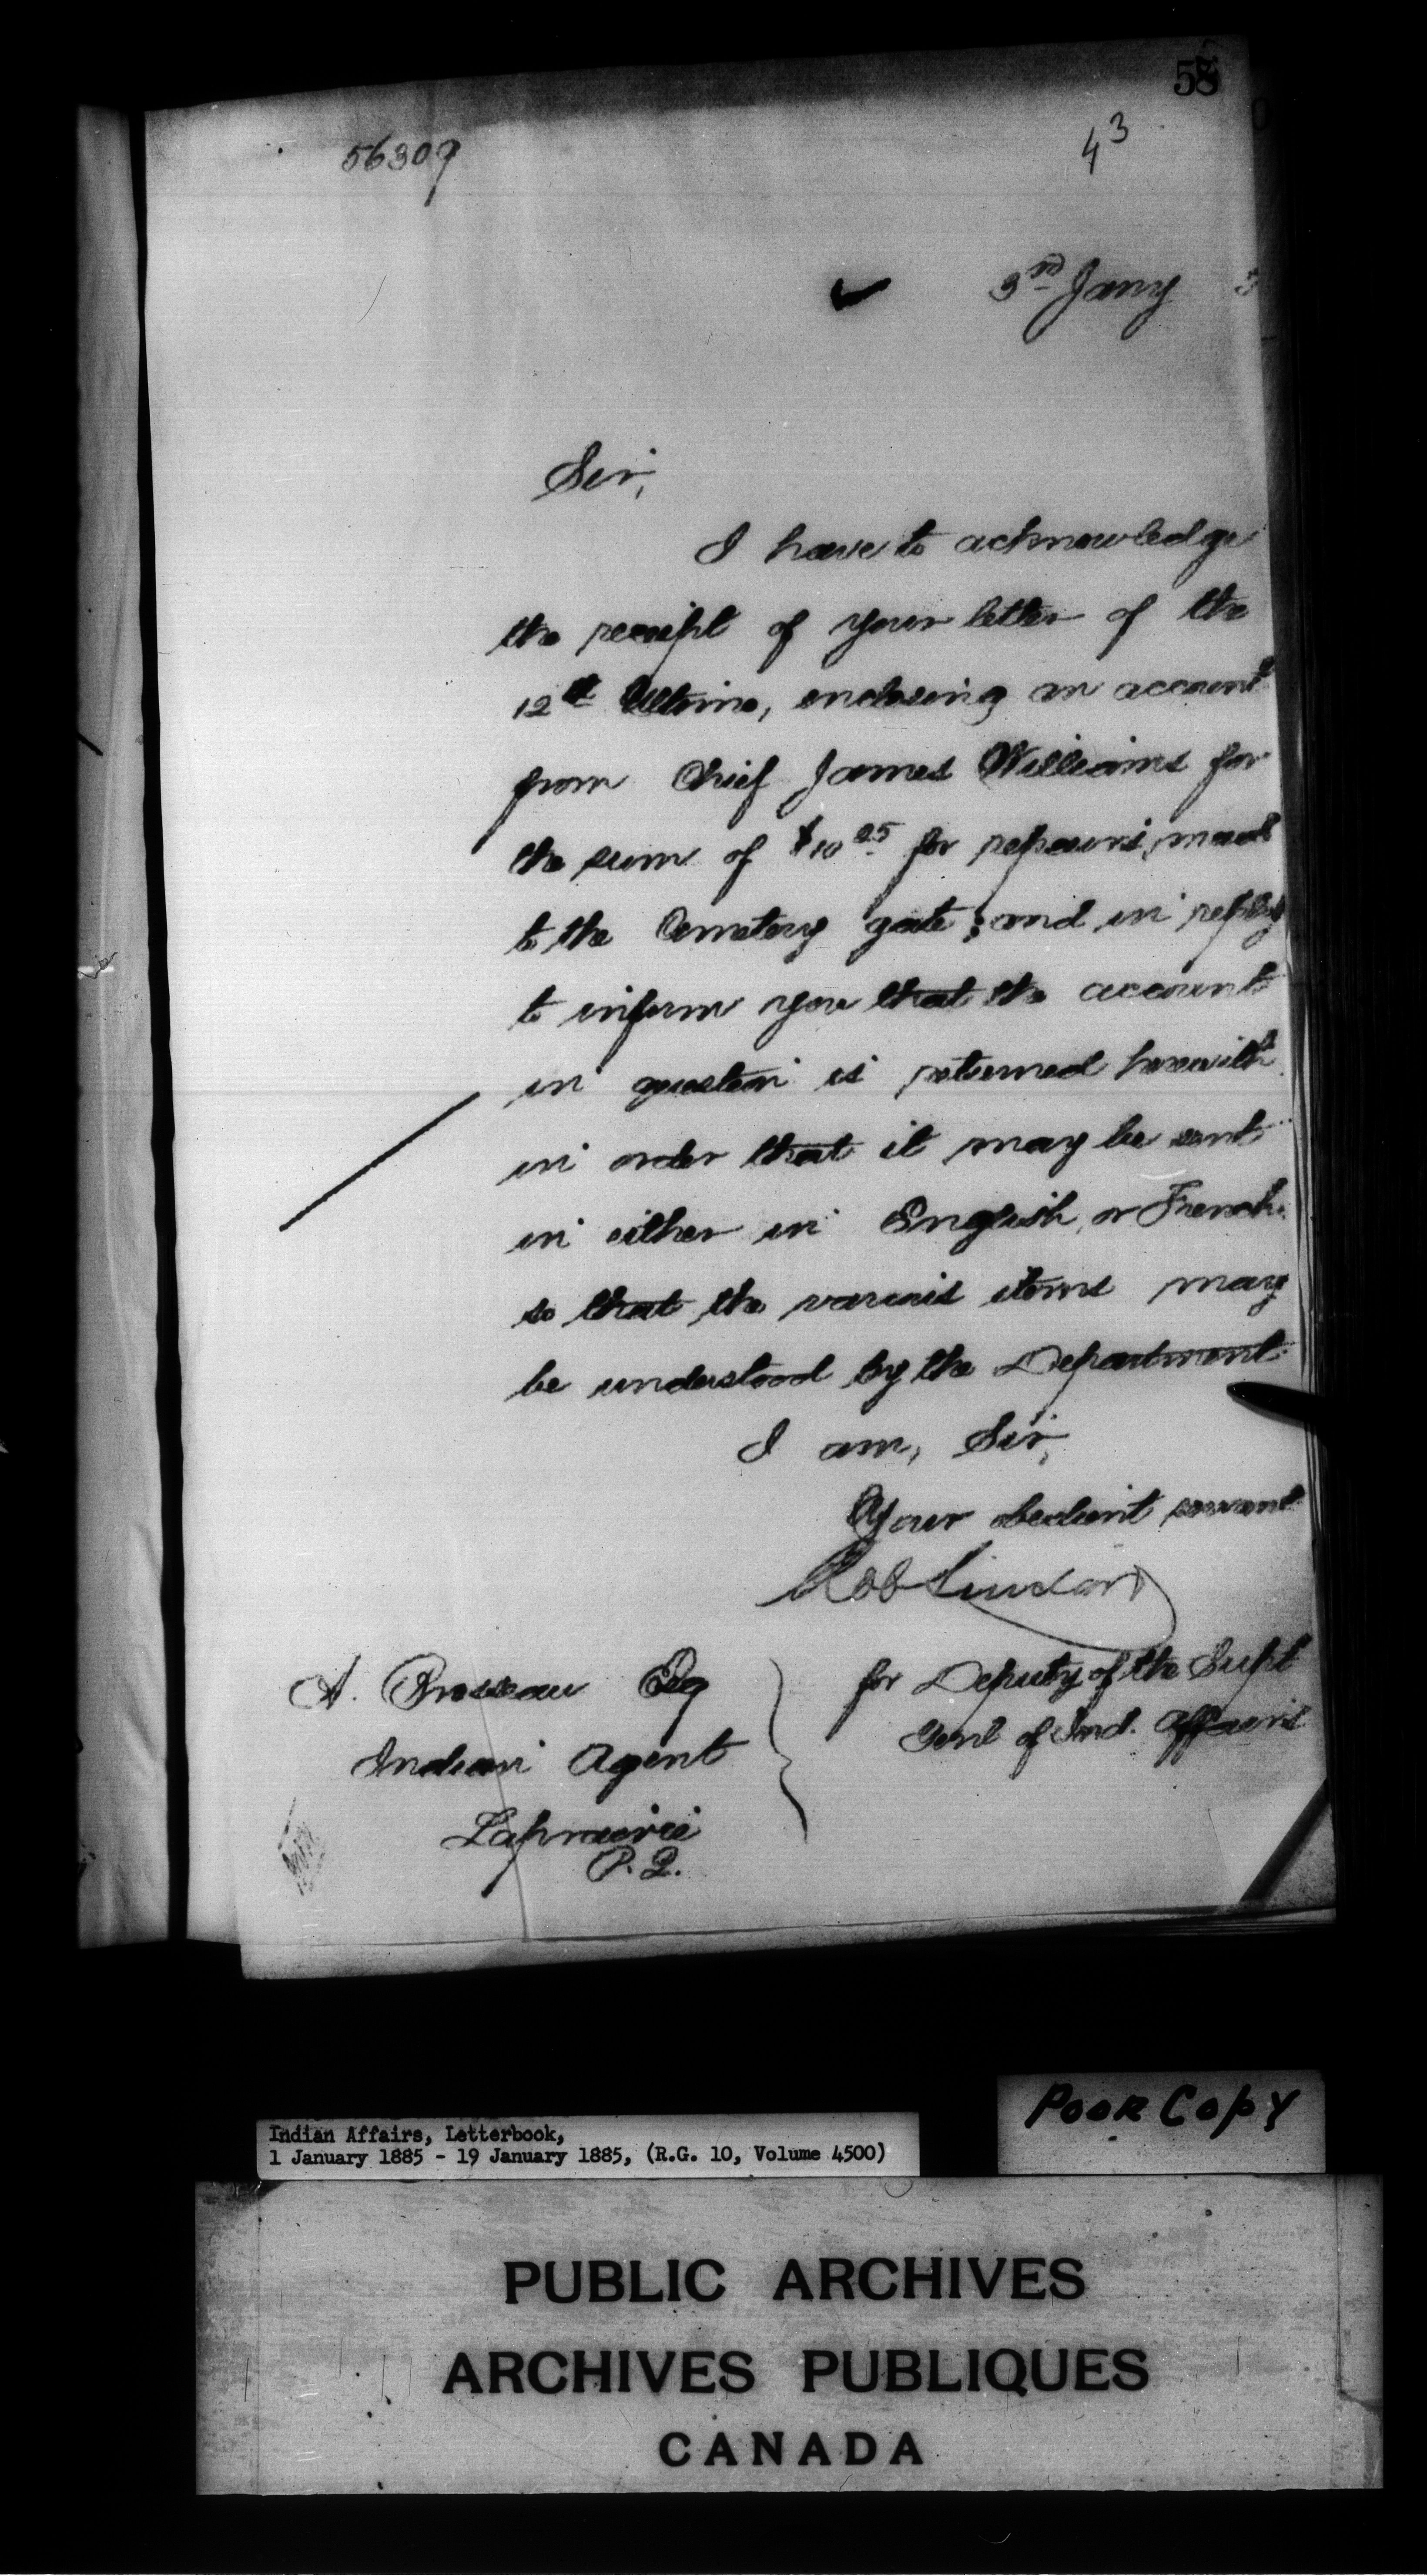 58
43
56309
3rd Jany
Sir,
I have to acknowledge
the receipt of your letter of the
12th Ultimo, enclosing an account
from Chief James Williams for
the sum of $10 25 for repairs made
to the Cemetery gate; and in reply
to inform you that the account
in question is returned herewith
in order that it may be sent
in either in English, or French
so that the various items may
be understood by the Department
I am, Sir,
Your obedient servant
Rob Sinclair
for Deputy of the Supt
Genl of Ind. Affairs
A. Brosseau Esq
Indian Agent
Laprairie
P.Q.
Poor Copy
Indian Affairs, Letterbook,
1 January 1885 - 19 January 1885, (R.G. 10, Volume 4500)
PUBLIC ARCHIVES
ARCHIVES PUBLIQUES
CANADA